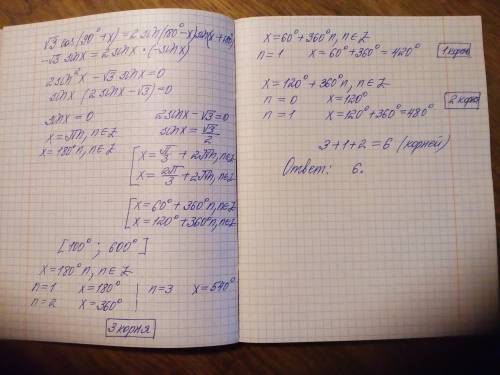 √3 cos(90°+x)=2sin(180°-x)sin(x+180°)
-√3 sinx=2sinx·(-sinx)
2sin²x-√3 sinx=0
sinx(2sinx-√3)=0
sinx=0 2sinx-√3=0
x=πn, n∈Z sinx=√3/2
x=180°n, n∈Z
[x=π/3+2πn, n∈Z
x=2π/3+2πn, n∈Z
[x=60°+360°n, n∈Z
x=120°+360°n, n∈Z
[100°; 600°]
x=180°n, n∈Z
n=1 x=180° | n=3 x=540°
n=2 x=360°
3 корня
x=60°+360°n, n∈Z
n=1 x=60°+360°=420° 1 корень
x=120°+360°n, n∈Z
n=0 x=120°
n=1 x=120°+360°=480° 2 корня
3+1+2=6 (корней)
Ответ: 6.